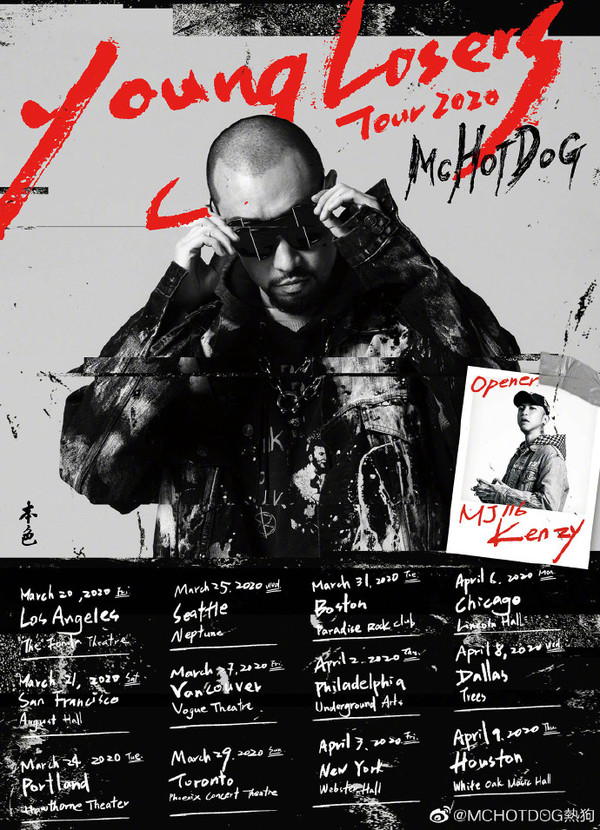 Young Losers
Tour 2020
MCHOTDOG
Opener
MJ116
Kenzy
本色
March 20, 2020 Fri
Los Angeles
The Fonda Theatre
March 21, 2020 Sat
San Francisco
August Hall
March 24. 2020 Tue
Portland
Hawthorne Theater
March 25. 2020 Wed
Seattle
Neptune
March 27. 2020 Fri
Vancouver
Vogue Theatre.
March 29. 2020 Sun
Toronto
Phoenix Concert Theatre
March 31. 2020 Tue
Boston
Paradise Rock Club
April 2. 2020 Thu
Philadelphia
Underground Arts
April 3. 2020 Fri
New York
Webster Hall
April 6. 2020 Mon
Chicago
Lincoln Hall
April 8, 2020 Wed
Dallas
Trees
April 9. 2020 Thu
Houston
White Oak Music Hall
@MCHOTDOG熱狗